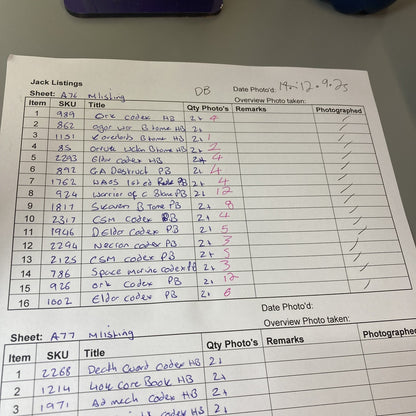 Jack Listings
Sheet: A76 Mlisting DB Date Photo'd:
Overview Photo taken:
Item SKU Title Qty Photo's Remarks Photographed
1 989 Ork codex HB 2+ 4
2 862 HB 2+
3 1151 B tome HB 2+ 1
4 85 B tome HB 2+ 2
5 2293 Eldar codex HB 2+ 4
6 892 GA Destruct PB 2+ 4
7 1762 1st ed PB 2+ 4
8 924 Warrior of C Btome PB 2+ 12
9 1817 Skaven B Tome PB 2+ 8
10 2317 CSM Codex PB 2+ 4
11 1946 D Eldar Codex PB 2+ 5
12 2294 Necron codex PB 2+ 3
13 2125 CSM codex PB 2+ 5
14 786 Space marine codex PB 2+ 3
15 926 Ork codex PB 2+ 12
16 1002 Eldar codex PB 2+ 8
Date Photo'd:
Overview Photo taken:
Sheet: A77 Mlisting
Item SKU Title Qty Photo's Remarks Photographed
1 2268 Death Guard Codex HB 2+
2 1214 40k Core Book HB 2+
3 1971 Ad mech codex HB 2+
codex HB 2+